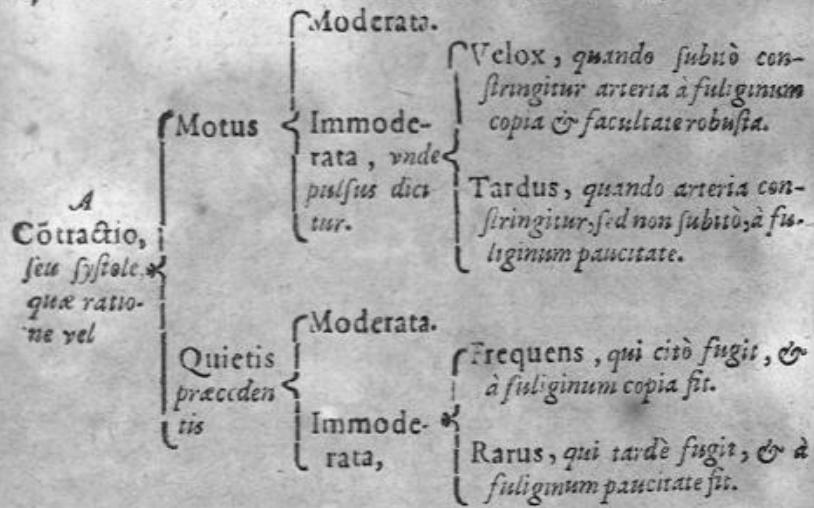 A
Cōtractio,
ſeu ſyſtole,
quæ ratio-
ne vel
Motus
Moderata.
Immode-
rata, vnde
pulſus dici
tur.
Velox, quando ſubitò con-
ſtringitur arteria à fuliginum
copia & facultate robuſta.
Tardus, quando arteria con-
ſtringitur, ſed non ſubitò, à fu-
liginum paucitate.
Quietis
præceden
tis
Moderata.
Immode-
rata,
Frequens, qui citò fugit, &
à fuliginum copia fit.
Rarus, qui tardè fugit, & à
fuliginum paucitate fit.